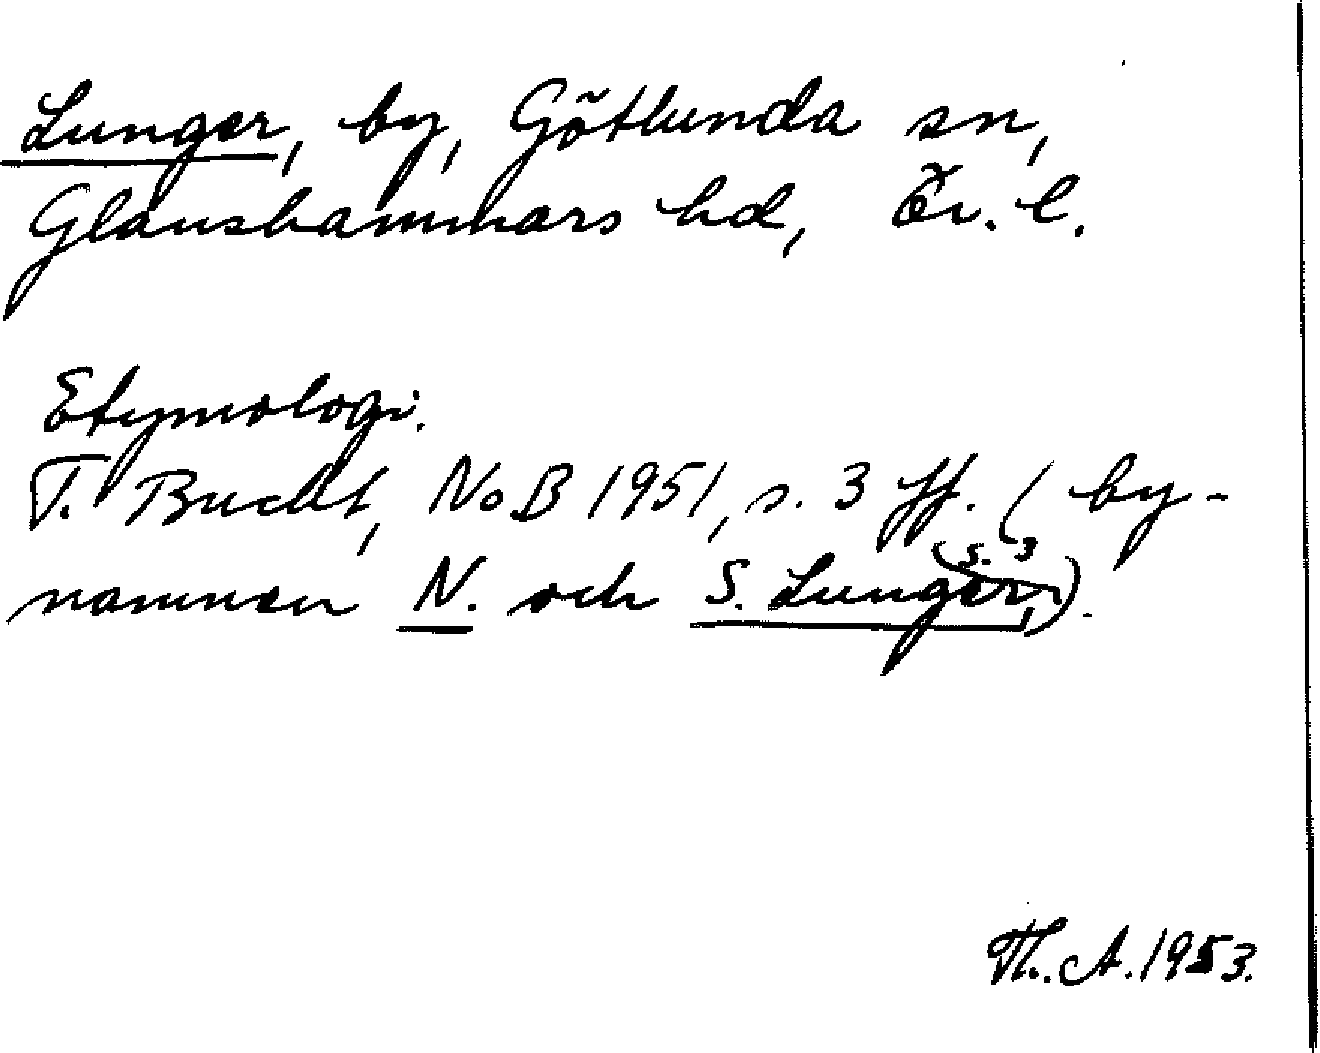 Lunger, by, Götlunda sn,
Glanshammars hd, Ör. l.
Etymologi.
T. Bucht, NoB 1951, s. 3 ff. (by-
namnen N. och S. Lunger, s. 3).
Th. A. 1953.